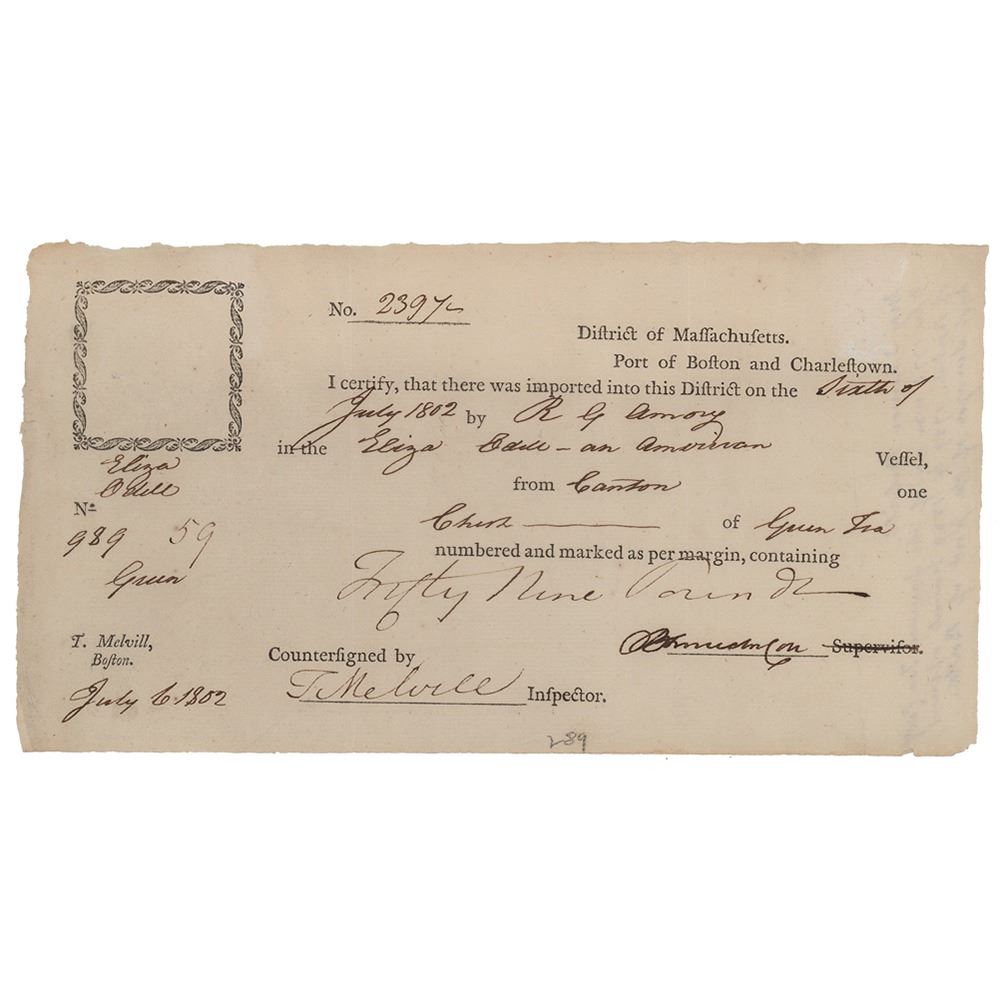 No. 2397
Diſtrict of Maſſachuſetts.
Port of Boſton and Charleſtown.
I certify, that there was imported into this Diſtrict on the Sixth of
July 1802 by R G Amory
in the Eliza Odell - an American Veſſel,
from Canton one
Chest of Green Tea
numbered and marked as per margin, containing
Fifty Nine Pounds
Superviſor.
Counterſigned by
T Melvill Inſpector.
Eliza
Odell
No
989 59
Green
T. Melvill,
Boſton.
July 6. 1802
289